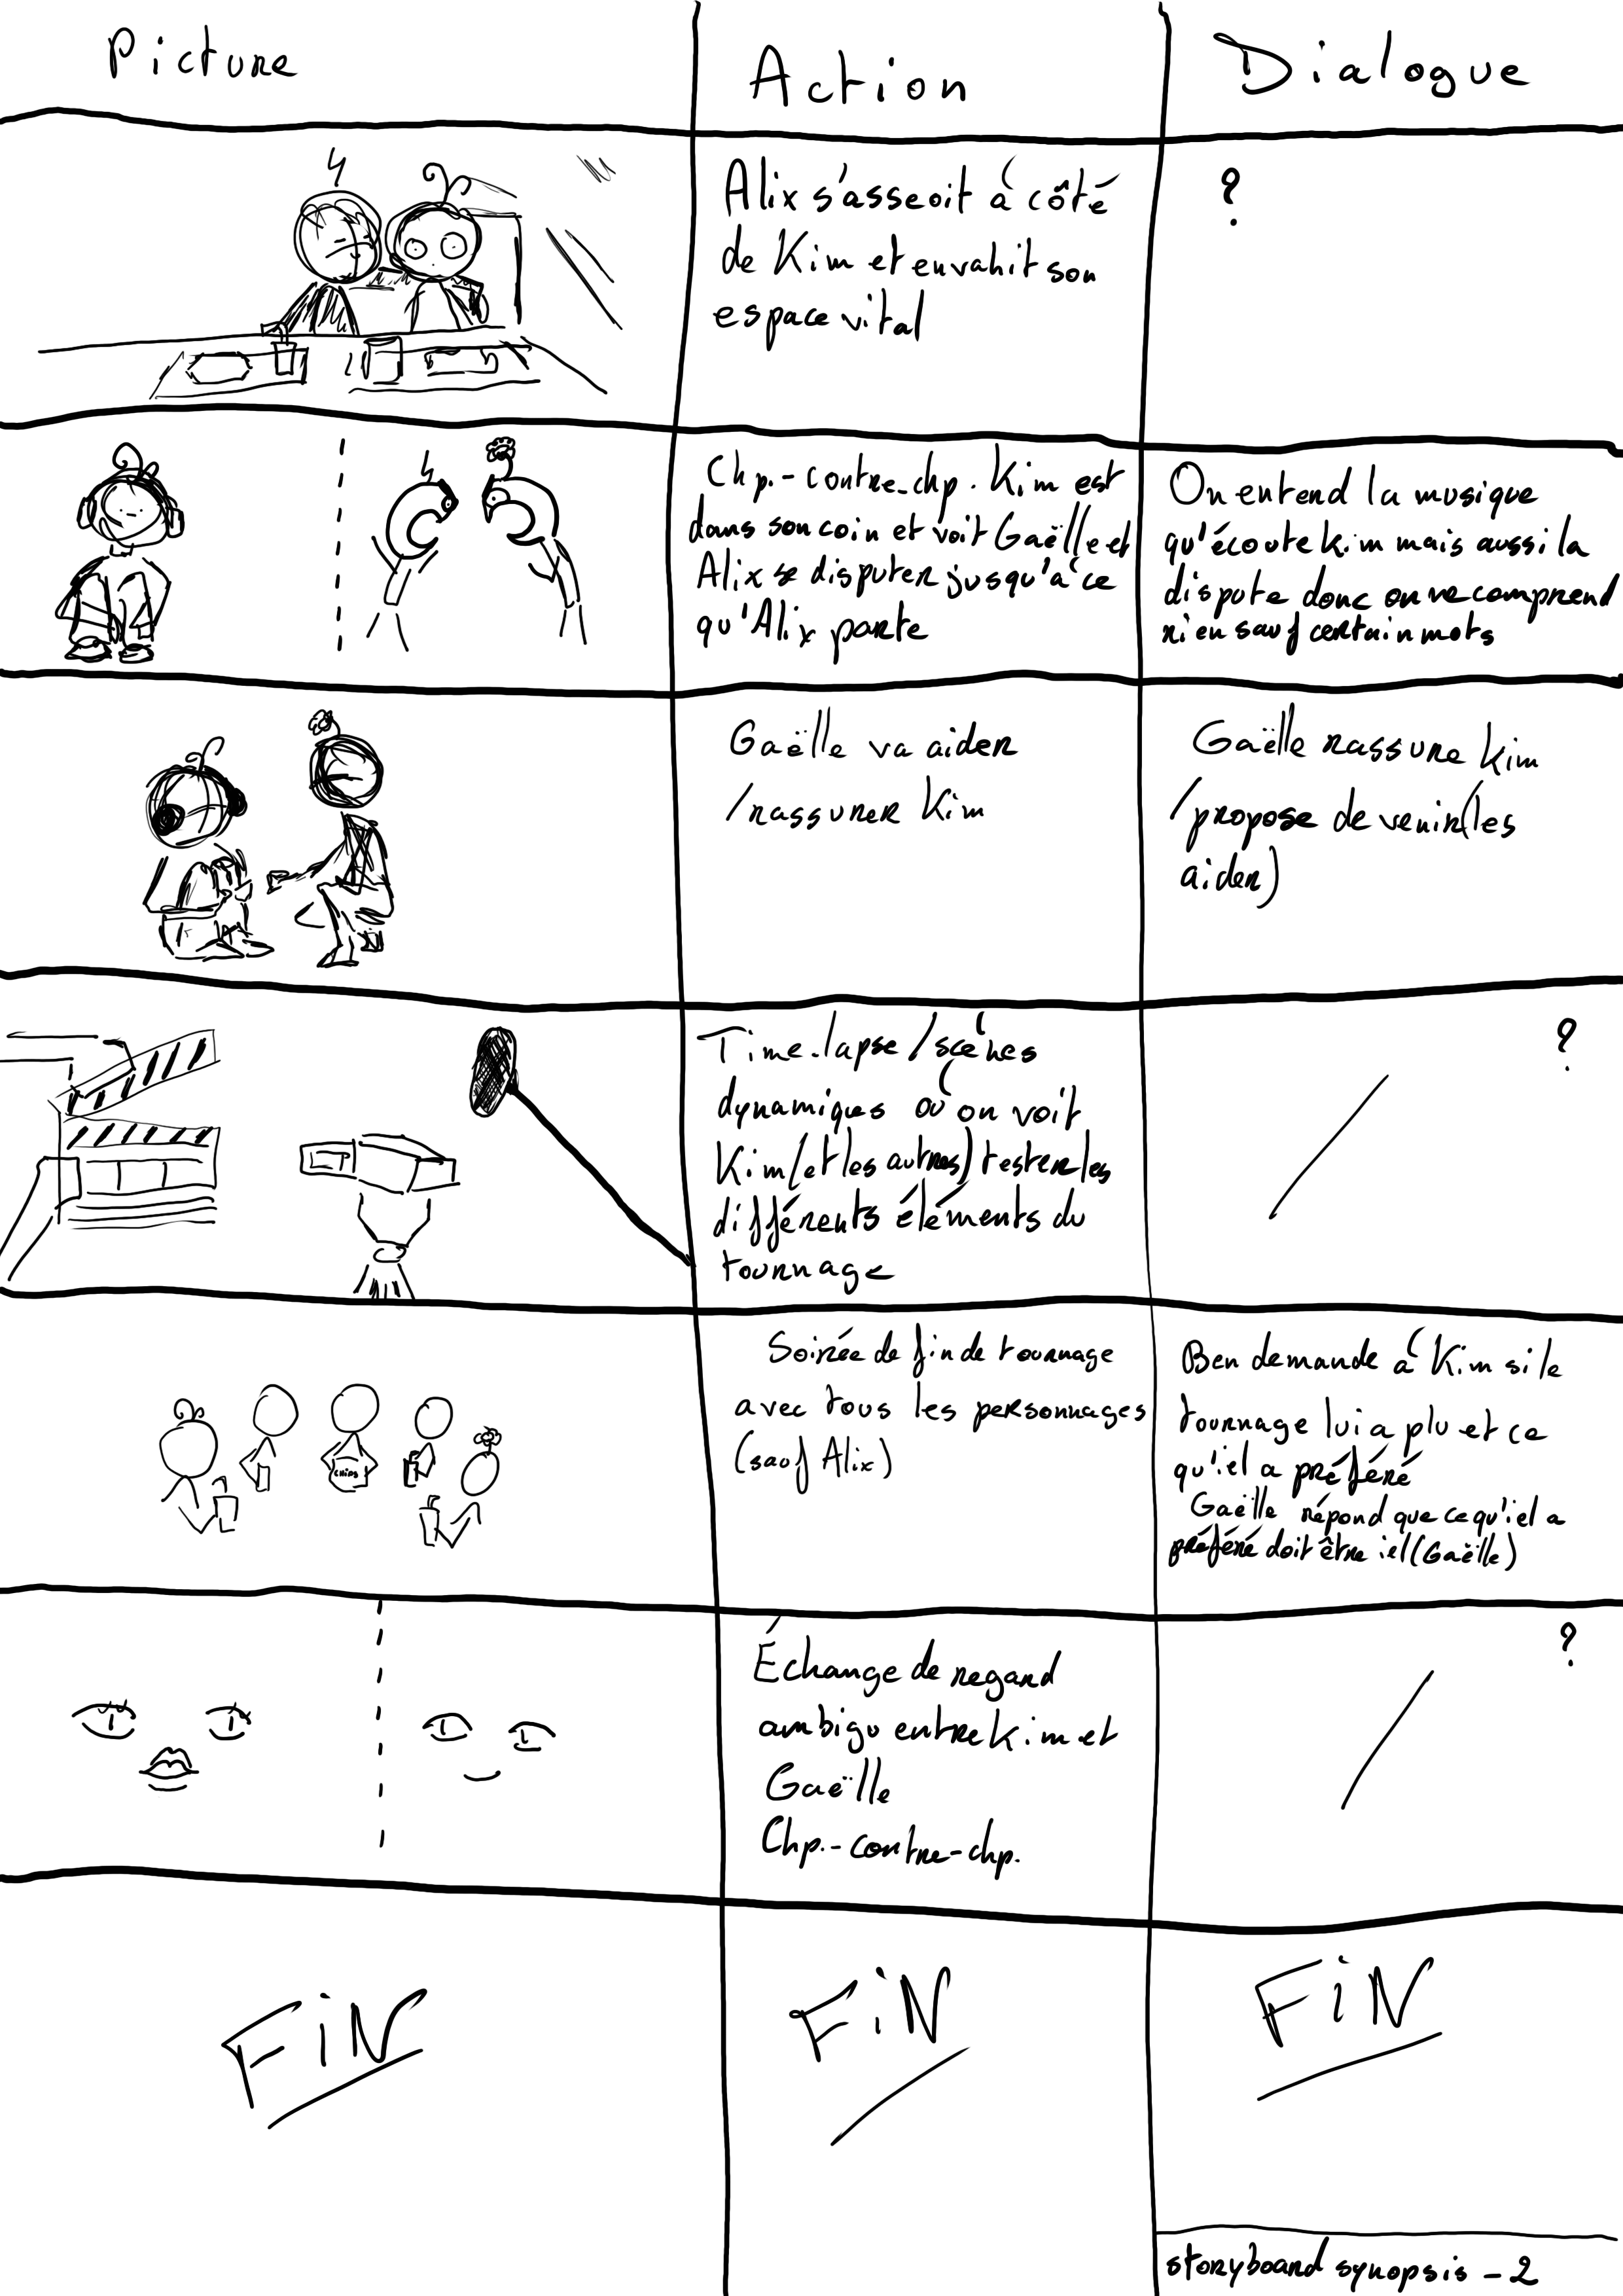 Picture
Action
Dialogue
Alix s'asseoit à côté
de Kim et envahit son
espace vital
?
Chp.-contre-chp. Kim est
dans son coin et voit Gaëlle et
Alix se disputer jusqu'à ce
qu'Alix parte
On entend la musique
qu'écoute Kim mais aussi la
dispute donc on ne comprend
rien sauf certain mots
Gaëlle va aider
/rassurer Kim
Gaëlle rassure Kim
/propose de venir(les
aider)
Time-lapse/scènes
dynamiques où on voit
Kim(et les autres) tester les
différents éléments du
tournage
?
/
CHIPS
Soirée de fin de tournage
avec tous les personnages
(sauf Alix)
Ben demande à Kim si le
tournage lui a plu et ce
qu'iel a préféré
Gaëlle répond que ce qu'iel a
préféré doit être iel(Gaëlle)
Échange de regard
ambigu entre Kim et
Gaëlle
Chp.-contre-chp.
?
/
FiN
FiN
FiN
storyboard synopsis - 2